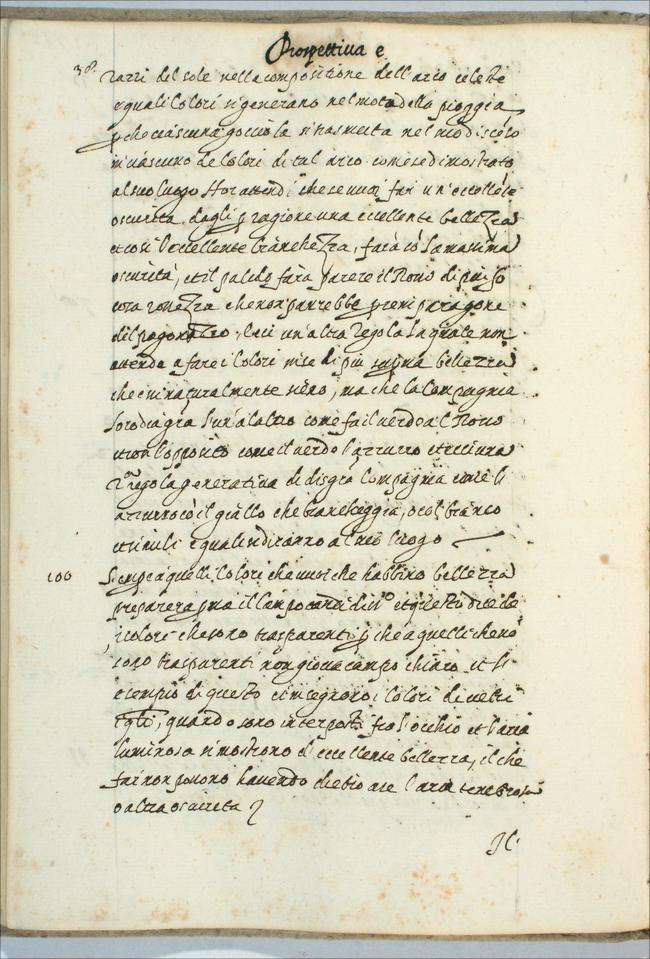 Prospettiua e
38.
razzi del sole nella compositione dell'arco celeste
e quali Colori si generano nel moto della pioggia
p che ciascuna gocciola si trasmuta nel suo discéso
in ciascuno de Colori di tal arco come se dimostrato
al suo luogo Hor attendi che se uuoi far un'eccellēte
oscurita dagli p ragione una eccellente bellezza
et cosi l'eccellente bianchezza, farà cō la massima
oscurità, et il palido farà parere il Roso di piu fo
cora rossezza che non parrebbe p se in paragone
del pagonazzo, Eaci un'altra regola la quale non
attende a fare i Colori in se di piu bellezza
che e in naturalmente sieno, ma che la Compagnia
loro dia gra l'un'a l'altro come fa il uerdo al Roso
et con l'opposito come il uerdo l'azzurro et ecci una
2ª regola generatiua di disgra Compagnia come li
azzurro cō il giallo che biancheggia, o col bianco
et simili e quali si diranno al suo luogo
100 Sempe a quelli Colori che uuoi che habbino bellezza
preparerai p ma il Campo candidissº et questo dico de
i colori che sono trasparenti p che a quelli che nō
sono trasparenti non gioua campo chiaro et l'
esempio di questo c'insegnono i Colori di uetri
Egli, quando sono interposti fra l'occhio et l'aria
luminosa si mostrono d'eccellente bellezza, il che
far non possono hauendo dietro a se l'aria tenebrosa
o altra oscurita
Il